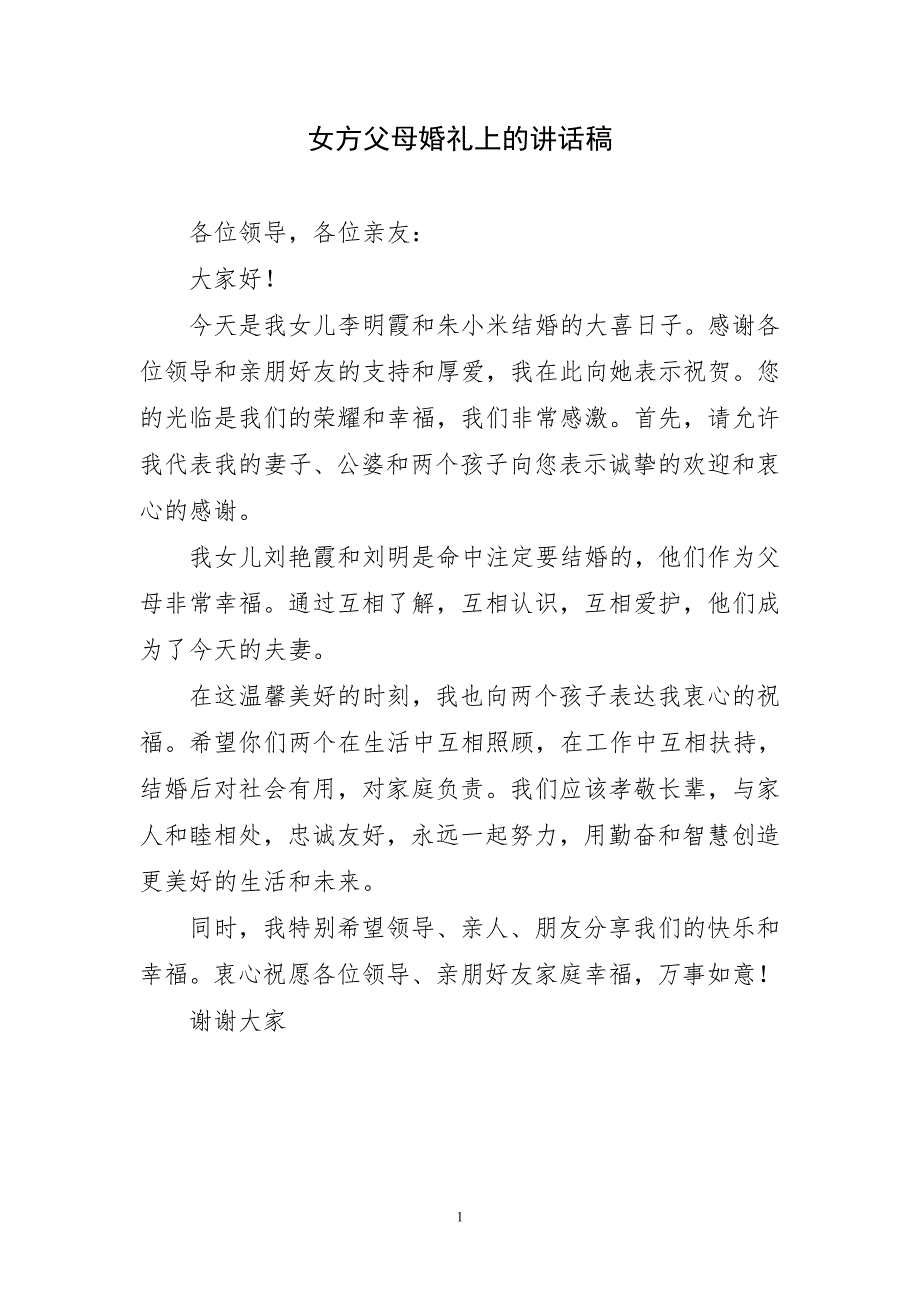 女方父母婚礼上的讲话稿
各位领导，各位亲友：
大家好！
今天是我女儿李明霞和朱小米结婚的大喜日子。感谢各
位领导和亲朋好友的支持和厚爱，我在此向她表示祝贺。您
的光临是我们的荣耀和幸福，我们非常感激。首先，请允许
我代表我的妻子、公婆和两个孩子向您表示诚挚的欢迎和衷
心的感谢。
我女儿刘艳霞和刘明是命中注定要结婚的，他们作为父
母非常幸福。通过互相了解，互相认识，互相爱护，他们成
为了今天的夫妻。
在这温馨美好的时刻，我也向两个孩子表达我衷心的祝
福。希望你们两个在生活中互相照顾，在工作中互相扶持，
结婚后对社会有用，对家庭负责。我们应该孝敬长辈，与家
人和睦相处，忠诚友好，永远一起努力，用勤奋和智慧创造
更美好的生活和未来。
同时，我特别希望领导、亲人、朋友分享我们的快乐和
幸福。衷心祝愿各位领导、亲朋好友家庭幸福，万事如意！
谢谢大家
1